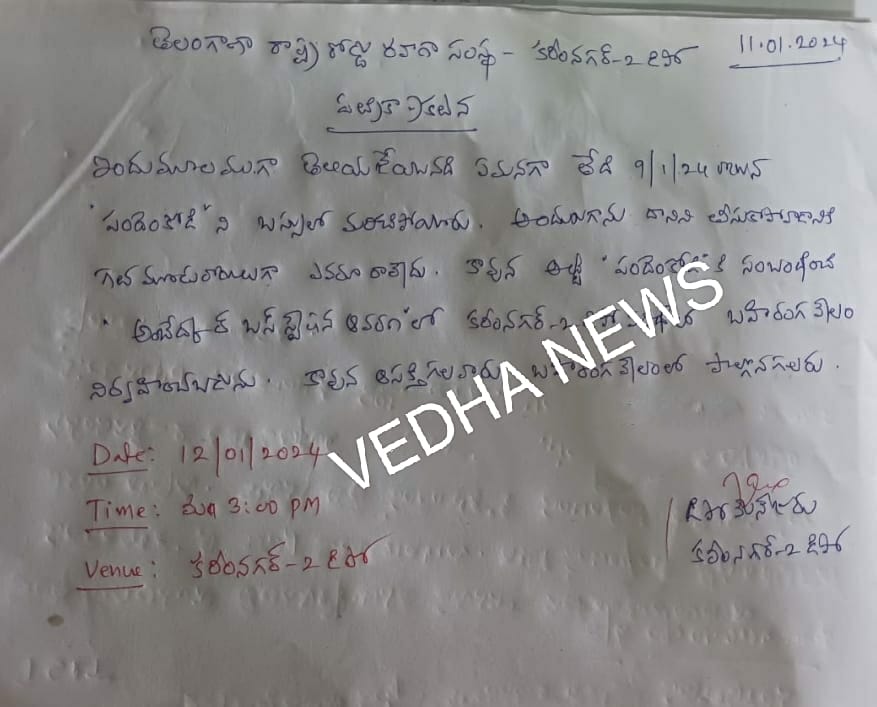 తెలంగాణా రాష్ట్ర రోడ్డు రవాణా సంస్థ - కరీంనగర్-2 డిపో 11.01.2024
పత్రికా ప్రకటన
ఇందుమూలముగా తెలియజేయునది ఏమనగా తేది 9/1/24 రోజున
"పందెంకోడి" ని బస్సులో మరిచిపోయారు. అందులకుగాను దానిని తీసుకుపోవడానికి
గత మూడురోజులుగా ఎవరూ రాలేదు. కావున అట్టి "పందెంకోడి"కి సంబంధించి
కరీంనగర్-2 బహిరంగ వేలం
నిర్వహించబడును. కావున ఆసక్తిగలవారు బహిరంగ వేలంలో పాల్గొనగలరు.
Date: 12/01/2024
Time: మధ్య 3:00 PM
Venue: కరీంనగర్-2 డిపో
డిపో మేనేజరు
కరీంనగర్-2 డిపో
VEDHA NEWS